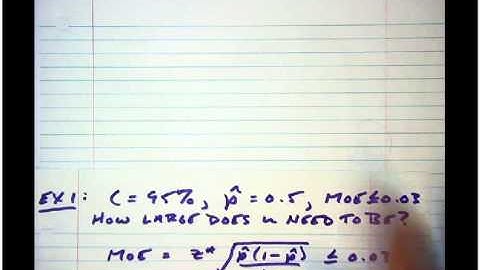 EX 1: C = 95%, p̂ = 0.5, MOE ≤ 0.03
HOW LARGE DOES n NEED TO BE?
MOE = z* √p̂(1-p̂) ≤ 0.03